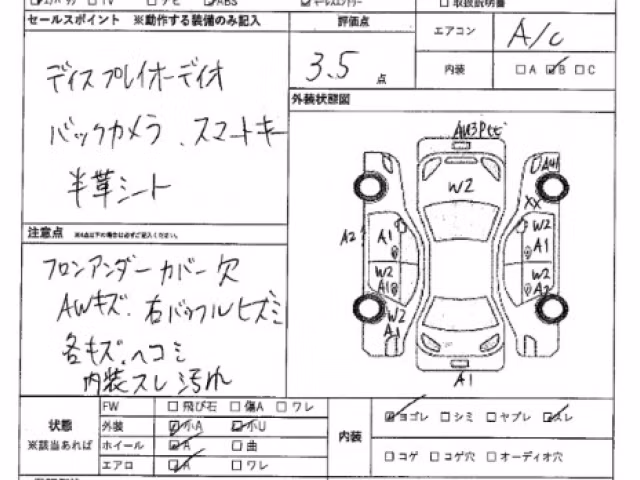 TV
ABS
取扱説明書
セールスポイント ※動作する装備のみ記入
評価点
エアコン
A/C
ディスプレイオーディオ
3.5 点
内装
A B C
バックカメラ、スマートキー
外装状態図
半革シート
W2
XX
A2
A1
W2
A1
W2
A1
W2
W2
A1
A1
注意点 ※4点以下の場合は必ずご記入ください。
フロンアンダーカバー欠
AWキズ、右バックフルヒズミ
各キズ、ヘコミ
内装スレ汚れ
状態
※該当あれば
FW 飛び石 傷A ワレ
外装 小A 小U
ホイール A 曲
エアロ A ワレ
内装
ヨゴレ シミ ヤブレ スレ
コゲ コゲ穴 オーディオ穴